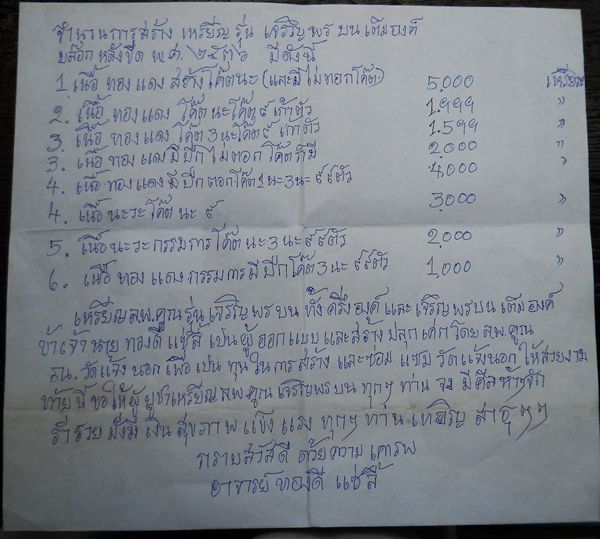 จำนวนการสร้าง เหรียญ รุ่น เจริญพร บน เต็มองค์
บล๊อก หลังขีด พ.ศ. ๒๕๓๖ มีดังนี้
1. เนื้อ ทองแดง สร้างโค๊ตนะ (และมีไม่ตอกโค๊ต) 5,000 เหรียญ
2. เนื้อ ทองแดง โค๊ตนะโค๊ต ๙ เก้าตัว 1.999 "
3. เนื้อ ทองแดง โค๊ต 3 นะโค๊ต ๙ เก้าตัว 1.599 "
3. เนื้อ ทองแดง มีปีก ไม่ตอก โค๊ตก็มี 2,000 "
4. เนื้อ ทองแดง มีปีก ตอกโค๊ต 1 นะ 3 นะ ๙ ๙ตัว 4,000 "
4. เนื้อ นะวะ โค๊ต นะ ๙ 3,000 "
5. เนื้อ นะวะ กรรมการ โค๊ต นะ 3 นะ ๙ ๙ตัว 2,000 "
6. เนื้อ ทองแดง กรรมการ มีปีกโค๊ต 3 นะ ๙ ๙ตัว 1,000 "
เหรียญ ลพ.คูณ รุ่น เจริญพร บน ทั้งครึ่งองค์ และ เจริญพรบน เต็มองค์
ข้าเจ้านาย ทองดี แซ่ลี้ เป็นผู้ ออกแบบ และสร้าง ปลุกเสกโดย ลพ.คูณ
ณ. วัดแจ้งนอก เพื่อ เป็น ทุน ในการ สร้าง และซ่อม แซม วัดแจ้งนอก ให้สวยงาม
ท้ายนี้ ขอให้ผู้ บูชาเหรียญ ลพ.คูณ เจริญพรบน ทุกๆ ท่าน จง มี ศีล ห้า
ร่ำรวย มั่งมี เงิน สุขภาพ แข็ง แรง ทุกๆ ท่าน เทอญ สาธุ ๆๆ
กราบสวัสดี ด้วยความ เคารพ
อาจารย์ ทองดี แซ่ลี้